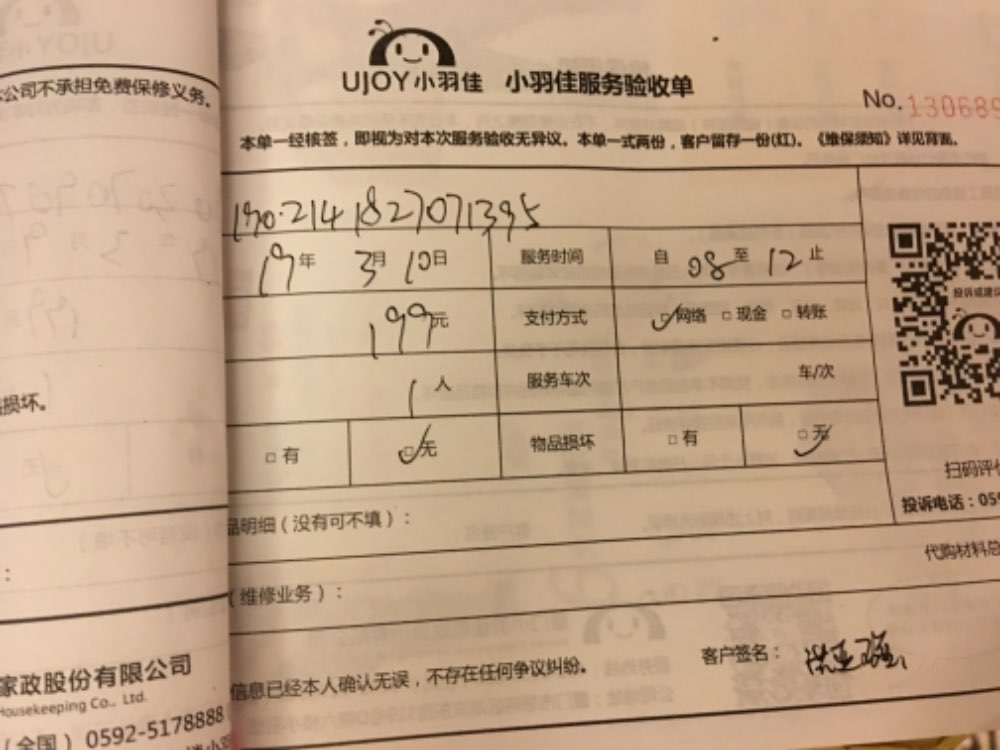 UJOY小羽佳 小羽佳服务验收单
No. 130689
公司不承担免费保修义务。
本单一经核签，即视为对本次服务验收无异议。本单一式两份，客户留存一份(红)。《维保须知》详见背面。
190.2141827071395
19年 3月 10日 服务时间 自 08 至 12 止
199元 支付方式 □网络 □现金 □转账
投诉或建议
1人 服务车次 车/次
损坏。
□有 □无 物品损坏 □有 □无
扫码评价
投诉电话：059
品明细（没有可不填）：
代购材料总
（维修业务）：
客户签名：
信息已经本人确认无误，不存在任何争议纠纷。
家政股份有限公司
Housekeeping Co., Ltd.
（全国）0592-5178888